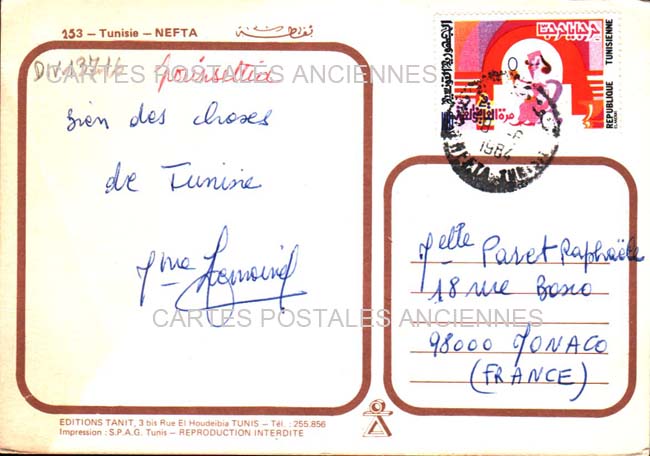 253 – Tunisie – NEFTA
نفطة
DIV13716
poinsettia
CARTES POSTALES ANCIENNES
Bien des choses
de Tunisie
Mme
الجمهورية التونسية
REPUBLIQUE TUNISIENNE
1984
NEFTA TUNISIE
Melle Pavet Raphaële
18 rue Bosio
98000 MONACO
(FRANCE)
CARTES POSTALES ANCIENNES
EDITIONS TANIT, 3 bis Rue El Houdeibia TUNIS – Tél. : 255.856
Impression : S.P.A.G. Tunis – REPRODUCTION INTERDITE